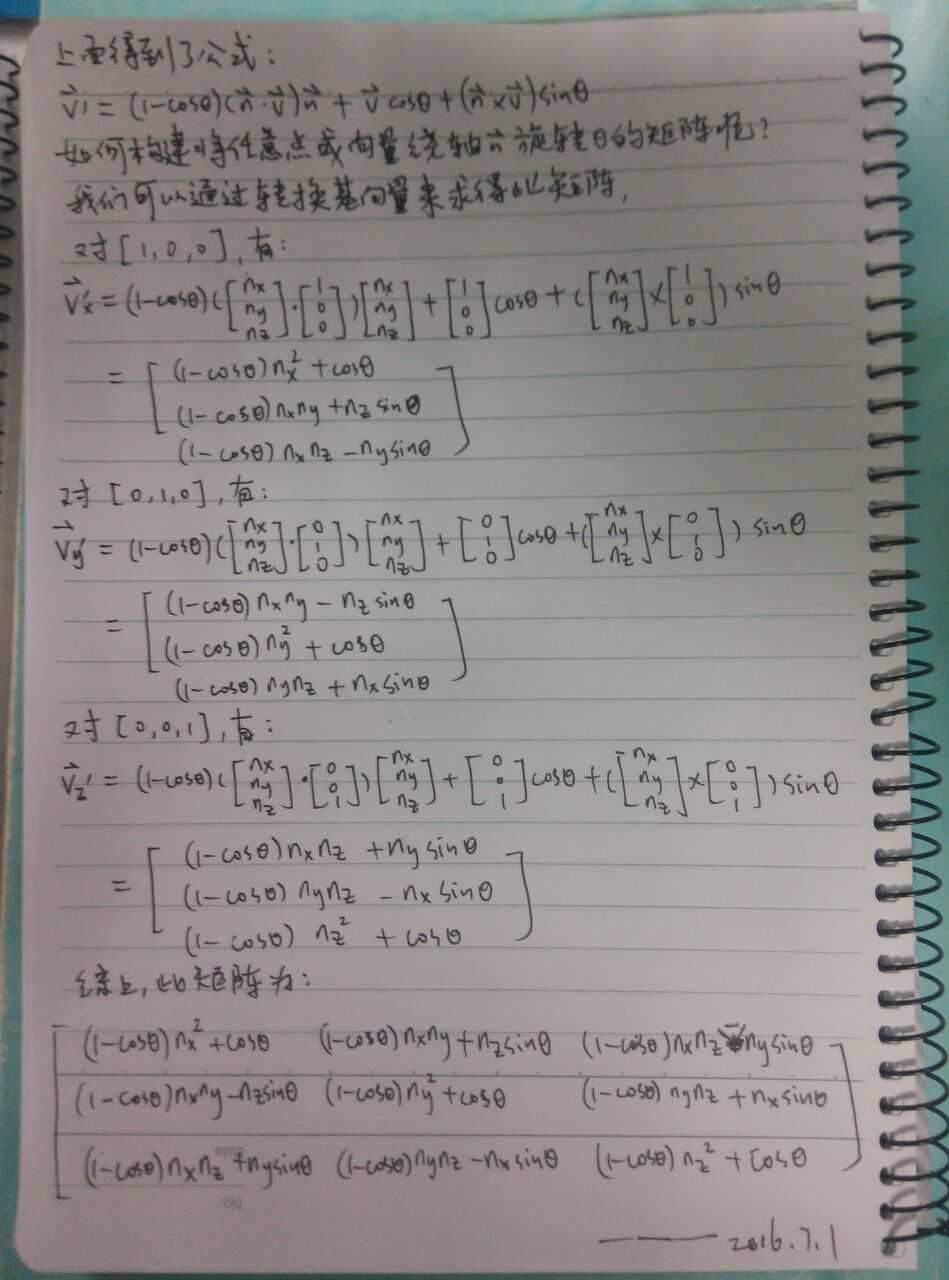 上面得到了公式:
v⃗' = (1-cosθ)(n⃗·v⃗)n⃗ + v⃗ cosθ + (n⃗×v⃗)sinθ
如何构建将任意点或向量绕轴n⃗旋转θ的矩阵呢?
我们可以通过转换基向量来求得此矩阵,
对[1,0,0],有:
v⃗x' = (1-cosθ)([nx ny nz]·[1 0 0])[nx ny nz] + [1 0 0]cosθ + ([nx ny nz]×[1 0 0])sinθ
= [(1-cosθ)nx² + cosθ
(1-cosθ)nxny + nz sinθ
(1-cosθ)nxnz - ny sinθ]
对[0,1,0],有:
v⃗y' = (1-cosθ)([nx ny nz]·[0 1 0])[nx ny nz] + [0 1 0]cosθ + ([nx ny nz]×[0 1 0])sinθ
= [(1-cosθ)nxny - nz sinθ
(1-cosθ)ny² + cosθ
(1-cosθ)nynz + nx sinθ]
对[0,0,1],有:
v⃗z' = (1-cosθ)([nx ny nz]·[0 0 1])[nx ny nz] + [0 0 1]cosθ + ([nx ny nz]×[0 0 1])sinθ
= [(1-cosθ)nxnz + ny sinθ
(1-cosθ)nynz - nx sinθ
(1-cosθ)nz² + cosθ]
综上,此矩阵为:
[(1-cosθ)nx² + cosθ (1-cosθ)nxny + nz sinθ (1-cosθ)nxnz - ny sinθ
(1-cosθ)nxny - nz sinθ (1-cosθ)ny² + cosθ (1-cosθ)nynz + nx sinθ
(1-cosθ)nxnz + ny sinθ (1-cosθ)nynz - nx sinθ (1-cosθ)nz² + cosθ]
—— 2016.7.1